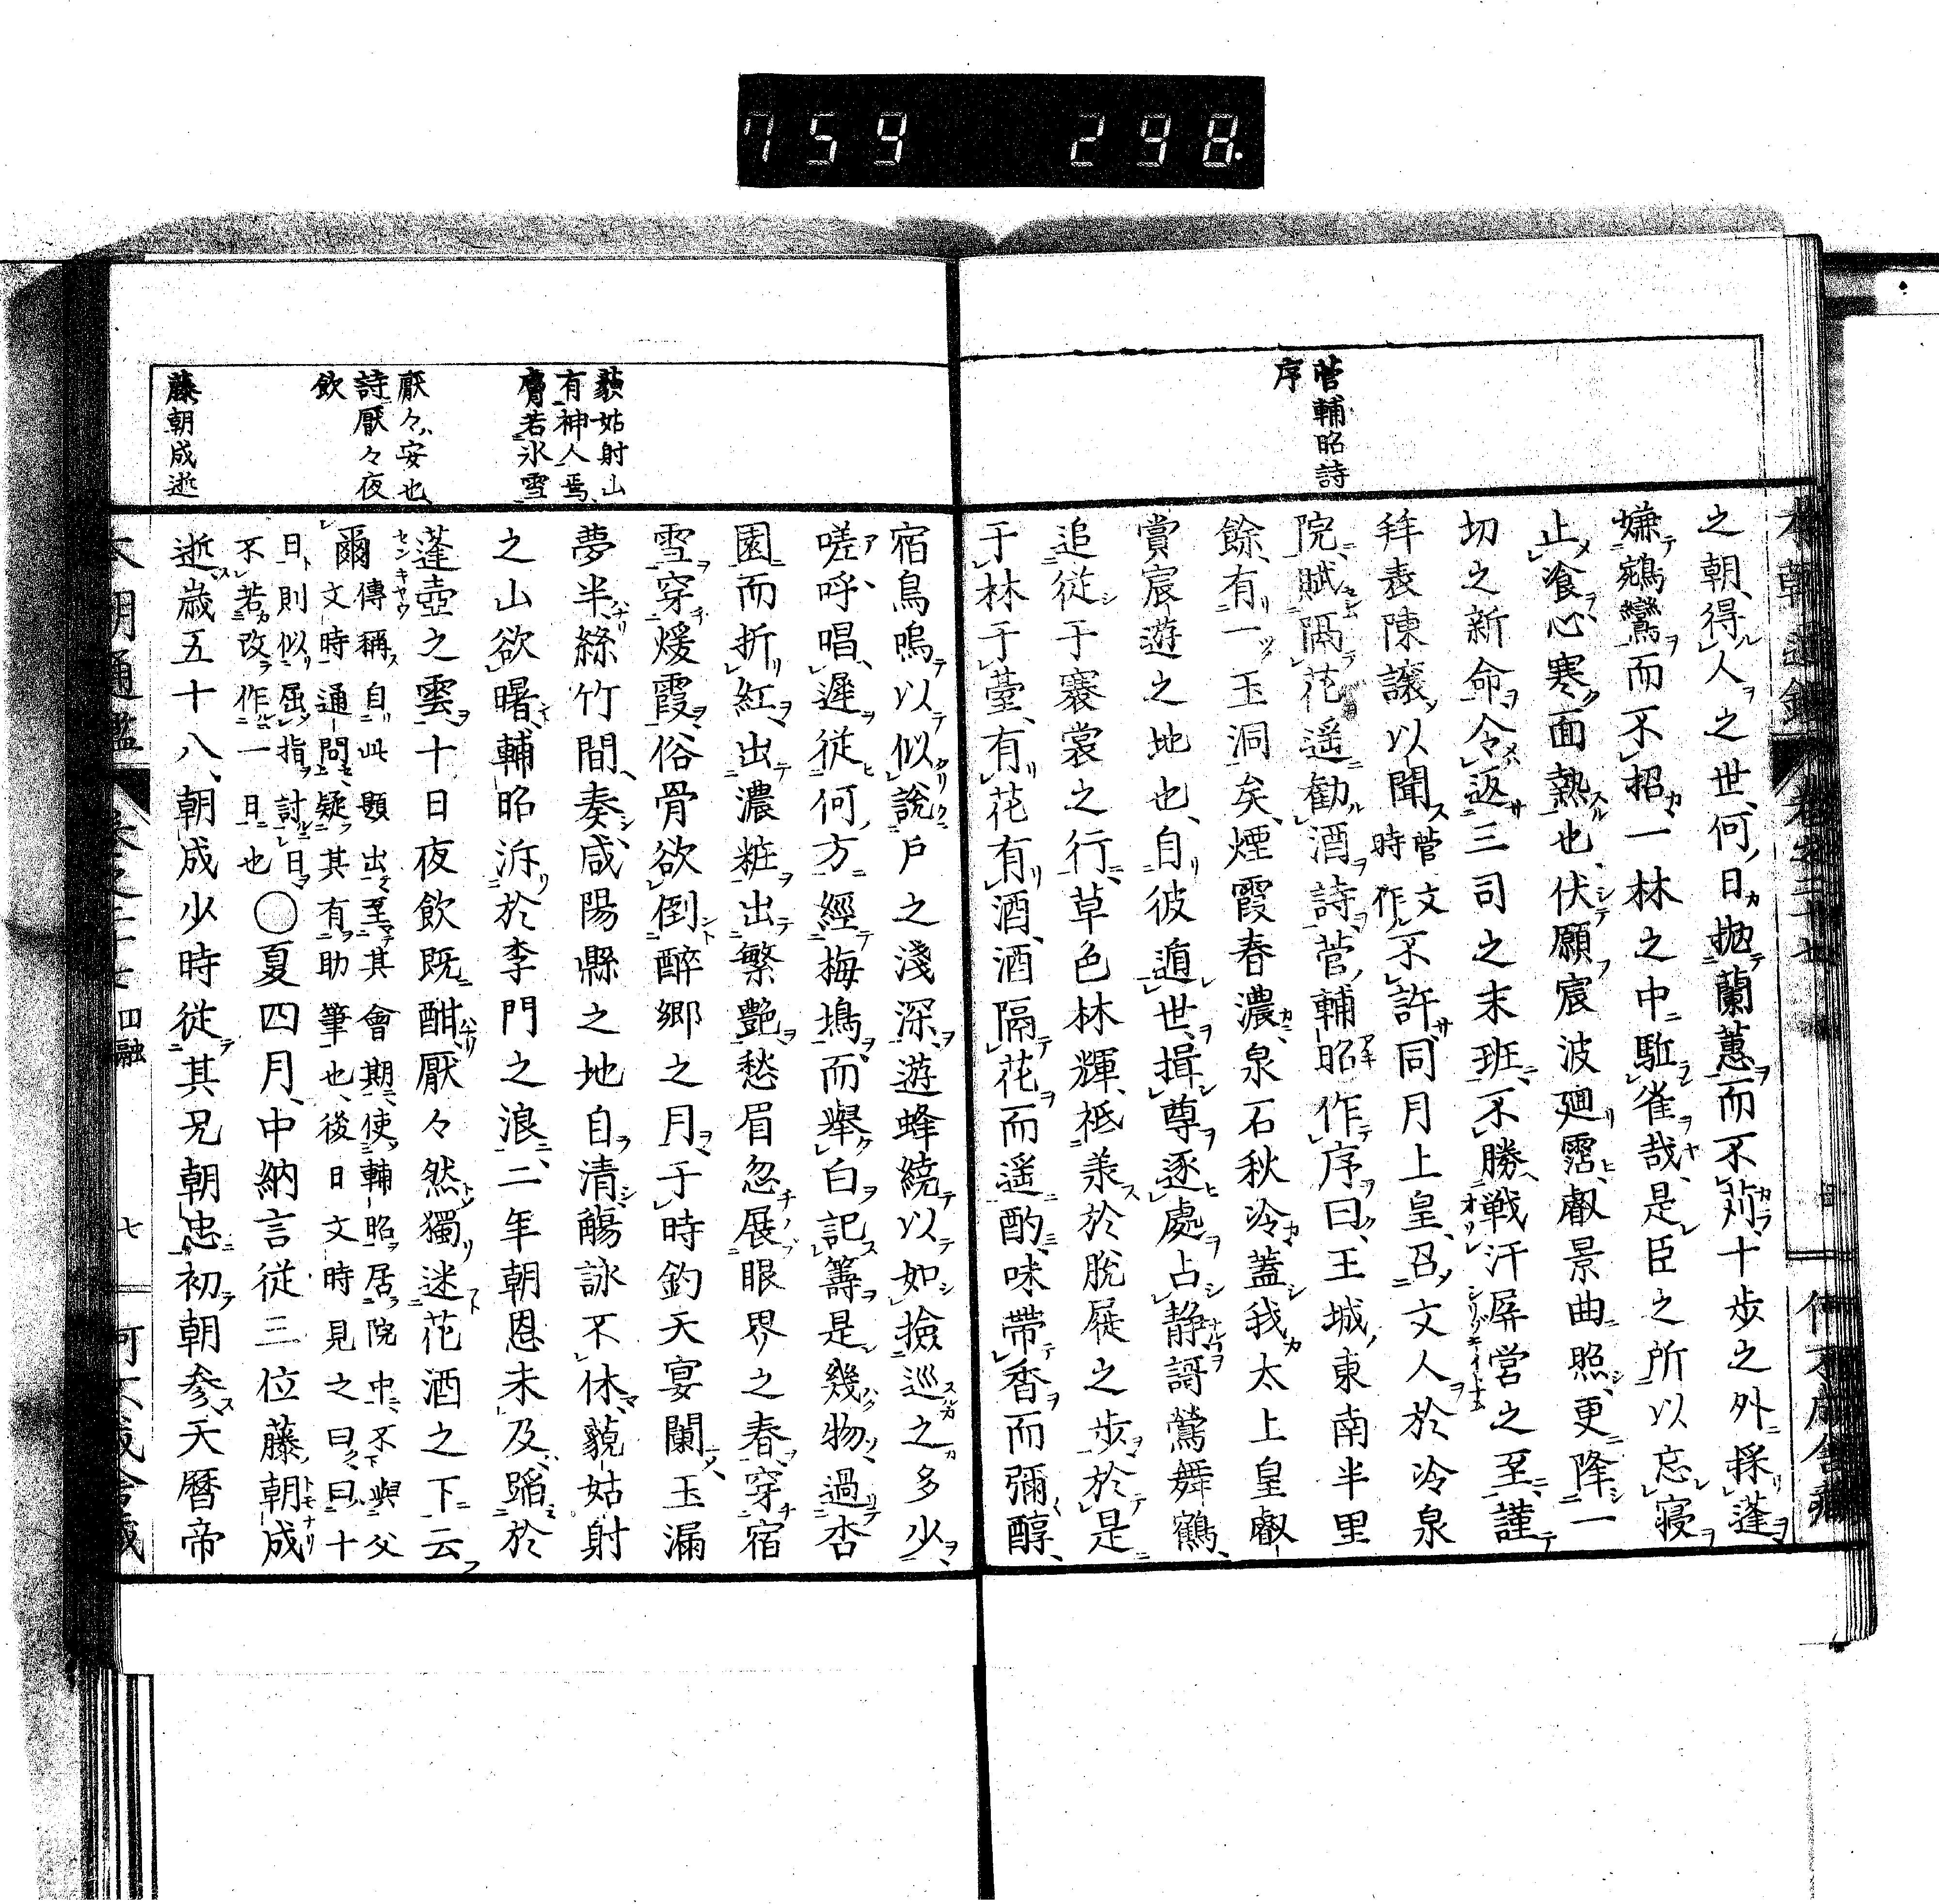 759 298.
菅輔昭詩
序
之朝、得人之世、何日拋蘭蕙而不苅、十步之外採蓬
嫌鵷鸞而不招、一林之中駈雀哉、是臣之所以忘寢
止飡、心寒面熱也、伏願宸波廻霑、叡景曲照、更降一
切之新命、令返三司之末班、不勝戰汗屏營之至、謹
拜表陳讓以聞菅文時作不許同月上皇召文人於冷泉
院、賦隔花遥勸酒詩、菅輔昭作序曰、王城東南半里
餘、有一玉洞矣、煙霞春濃、泉石秋冷、蓋我太上皇叡
賞宸遊之地也、自彼遁世、揖尊、逐處占靜、謌鶯舞鶴、
追從于褰裳之行、草色林輝、祗羕於脫屣之步、於是
于林于臺、有花有酒、酒隔花而遥酌、味帶香而彌醇、
藐姑射山
有神人焉、
膚若氷雪
厭々安也、
詩厭々夜
飲
藤朝成逝
宿鳥鳴以似說戶之淺深、遊蜂繞以如撿巡之多少、
嗟呼唱遲從何方、經梅塢而舉白、記籌是幾物、過杏
園而折紅、出濃粧出繁艷、愁眉忽展眼界之春、穿宿
雪穿煖霞、俗骨欲倒醉鄉之月、于時釣天宴闌、玉漏
夢半、絲竹間奏、咸陽縣之地自清、觴詠不休、藐姑射
之山欲曙、輔昭泝於李門之浪、二年朝恩未及、蹈於
蓬壺之雲、十日夜飲既酣、厭々然獨迷花酒之下云
爾傳稱自此題出至其會期、使輔昭居院中不與父
文時通問、疑其有助筆也、後日文時見之曰、曰十
日則似屈指討日
不若改作一日也○夏四月、中納言從三位藤朝成
逝、歲五十八、朝成少時從其兄朝忠初朝參天曆帝
四融
七